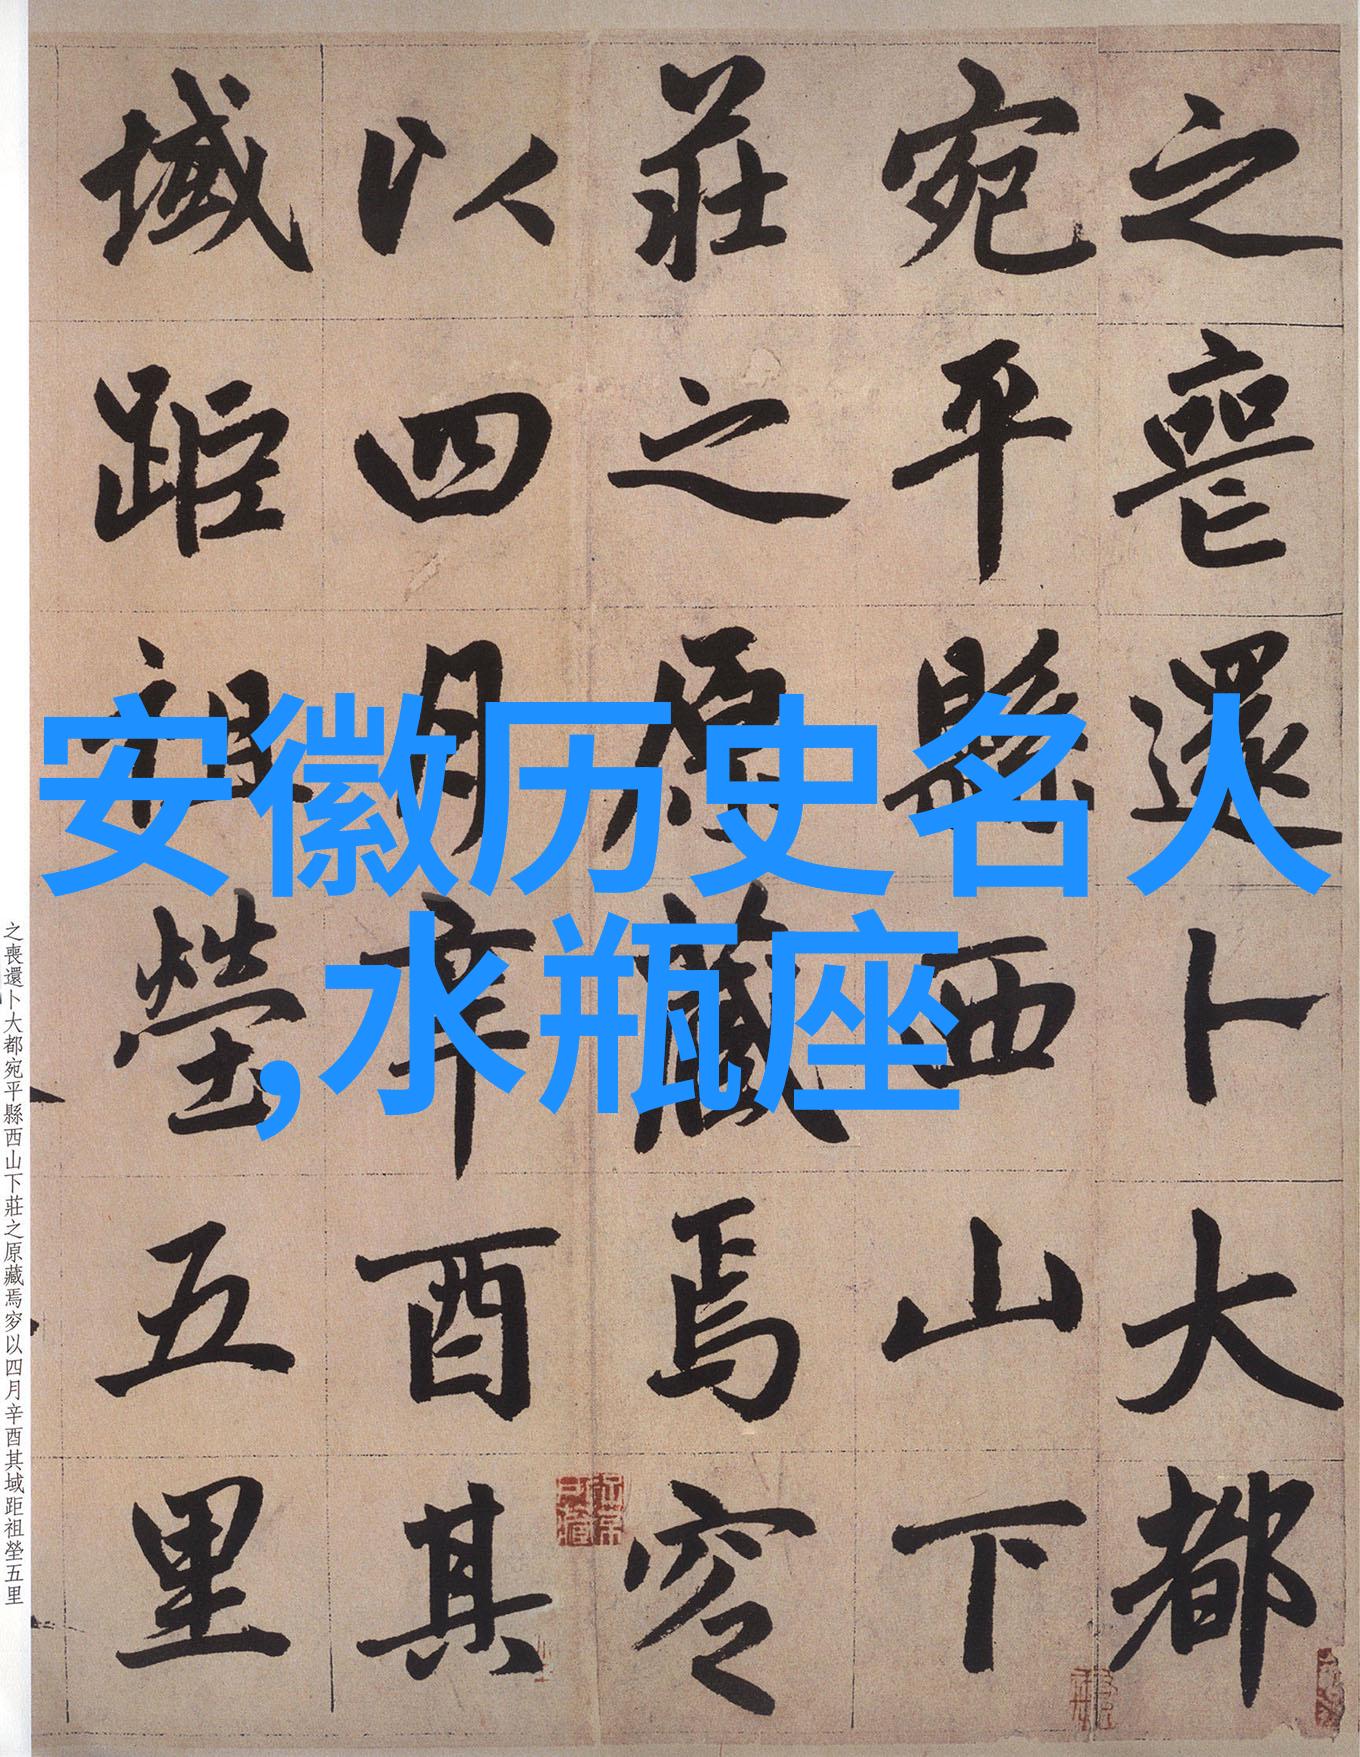 之喪還卜大都
宛平縣西山下
莊之原藏焉窆
以四月辛酉其
域距祖塋五里
安徽历史名人
,水瓶座
之喪還卜大都宛平縣西山下莊之原藏焉窆以四月辛酉其域距祖塋五里